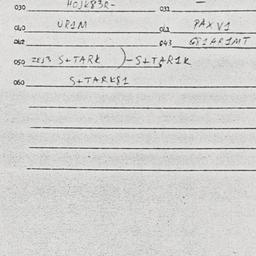 030 HOJK83R- 031 -
040 UR1M 041 PAXV1
042 043 GR1AR1MT
050 S+TARK )-S+TAR1K
060 S+TARK81